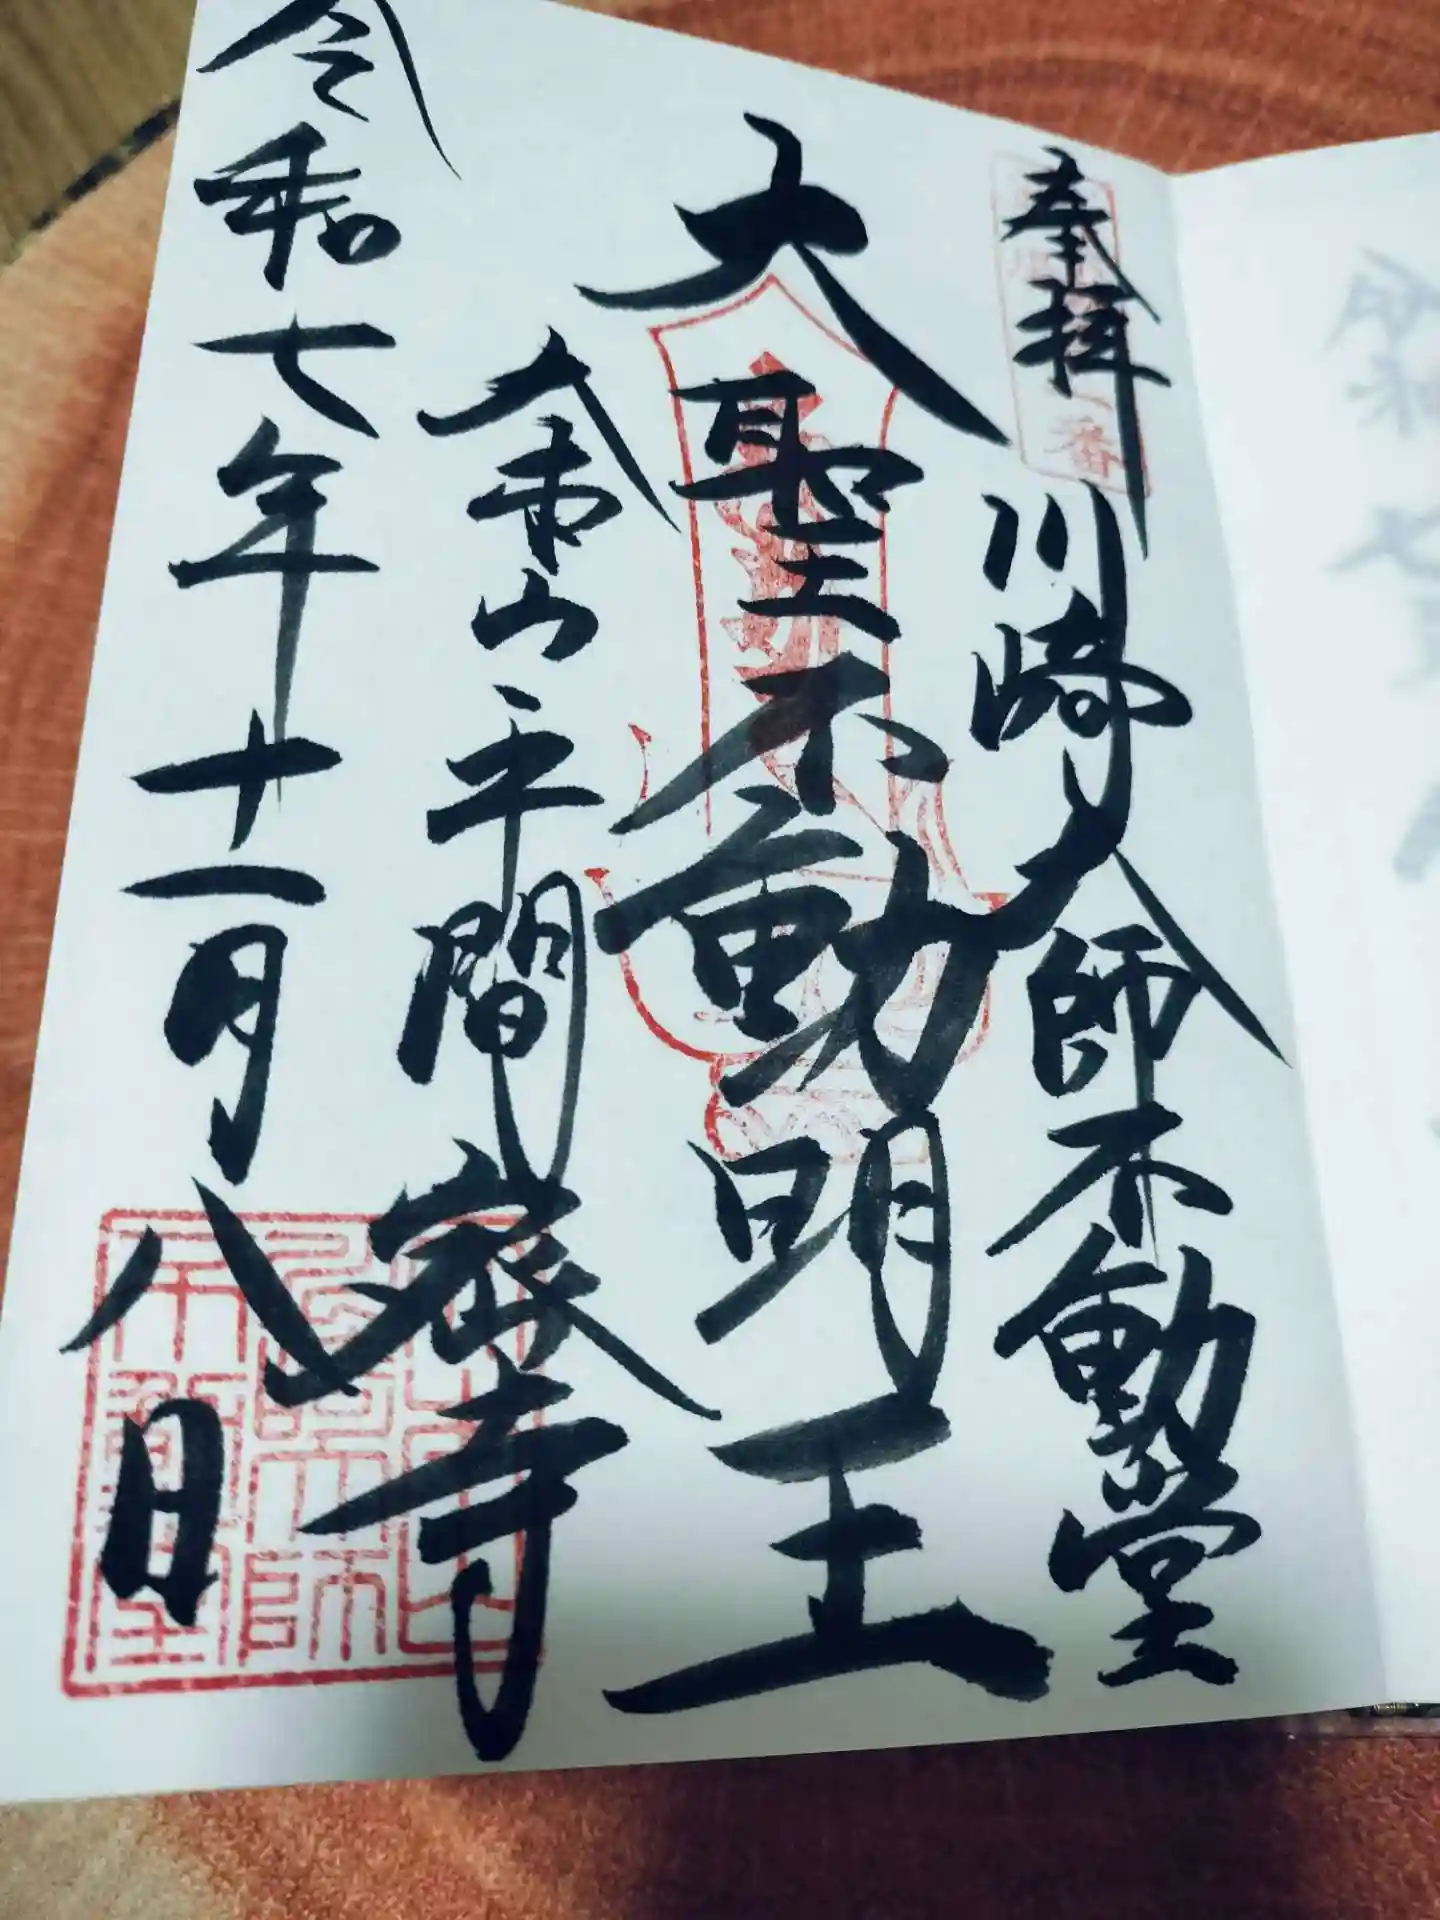 奉拝
川崎大師不動堂
大聖不動明王
金剛山平間寺
令和七年十一月八日
番